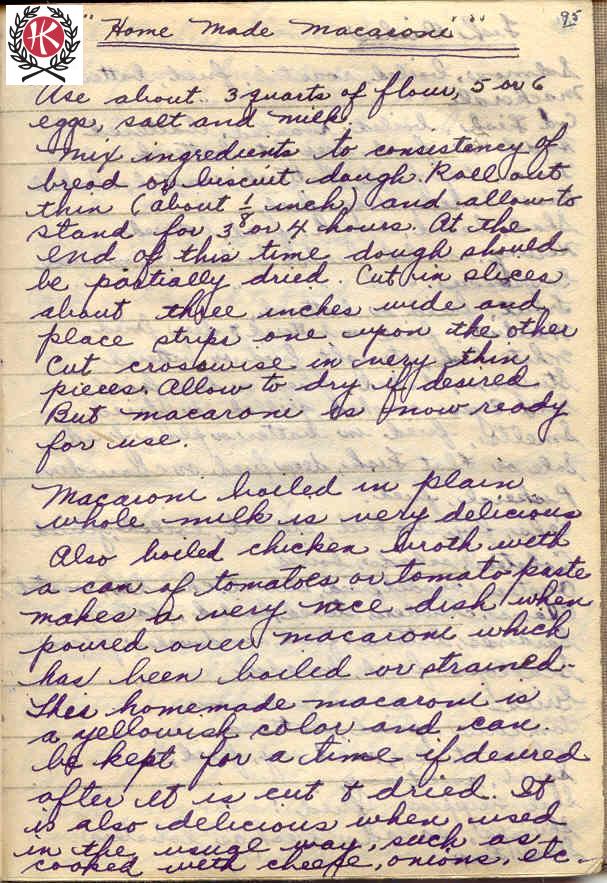 95
"Home Made Macaroni"
Use about 3 quarts of flour, 5 or 6
eggs, salt and milk.
Mix ingredients to consistency of
bread or biscuit dough. Roll out
thin (about 1/8 inch) and allow to
stand for 3 or 4 hours. At the
end of this time dough should
be partially dried. Cut in slices
about three inches wide and
place strips one upon the other
Cut crosswise in very thin
pieces. Allow to dry if desired
But macaroni is now ready
for use.
Macaroni boiled in plain
whole milk is very delicious
Also boiled chicken broth with
a can of tomatoes or tomato paste
makes a very nice dish when
poured over macaroni which
has been boiled or strained.
This homemade macaroni is
a yellowish color and can
be kept for a time if desired
after it is cut & dried. It
is also delicious when used
in the usuge way, such as
cooked with cheese, onions, etc.